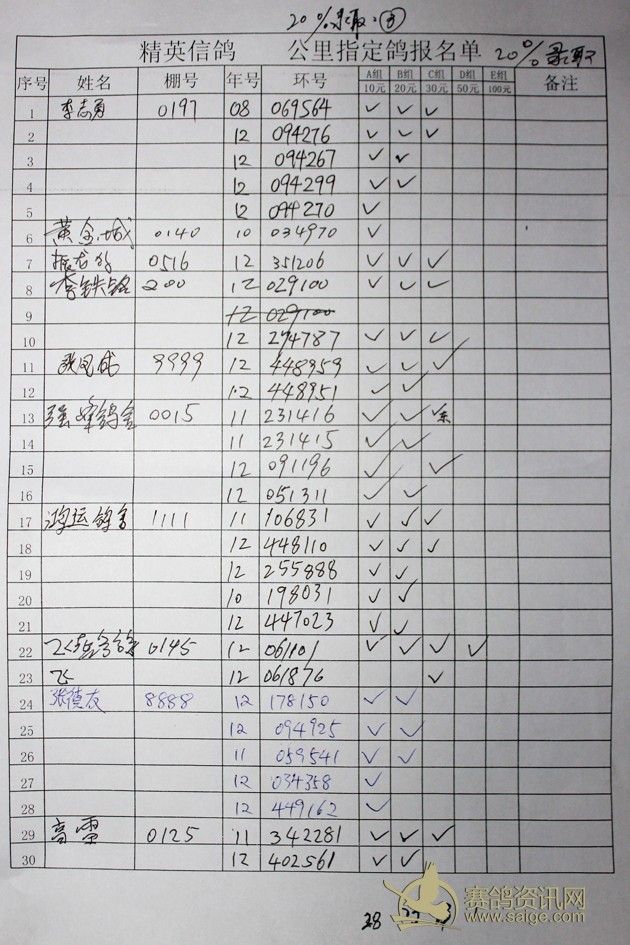 20% 录取:⑤
精英信鸽 公里指定鸽报名单 20% 录取
序号 姓名 棚号 年号 环号 A组10元 B组20元 C组30元 D组50元 E组100元 备注
1 李志勇 0197 08 069564 ✓ ✓ ✓
2 12 094276 ✓ ✓ ✓
3 12 094267 ✓ ✓
4 12 094299 ✓ ✓
5 12 094270 ✓
6 黄金城 0140 10 034970 ✓
7 0516 12 351206 ✓ ✓ ✓
8 李铁铭 200 12 029100 ✓ ✓ ✓
9 12 029100
10 12 274787 ✓ ✓ ✓
11 张凤成 9999 12 448959 ✓ ✓ ✓
12 12 448951 ✓ ✓
13 强峰鸽舍 0015 11 231416 ✓ ✓ ✓
14 11 231415 ✓ ✓
15 12 091196 ✓ ✓
16 12 051311 ✓ ✓
17 鸿运鸽舍 1111 11 106831 ✓ ✓ ✓
18 12 448110 ✓ ✓ ✓
19 12 255888 ✓ ✓
20 10 198031 ✓ ✓
21 12 447023 ✓ ✓
22 0145 12 061101 ✓ ✓ ✓ ✓
23 飞 12 061876 ✓
24 张德友 8888 12 178150 ✓ ✓
25 12 094925 ✓ ✓
26 11 059541 ✓ ✓
27 12 034358 ✓
28 12 449162 ✓
29 高雷 0125 11 342281 ✓ ✓ ✓
30 12 402561 ✓ ✓
28
赛鸽资讯网
www.saige.com